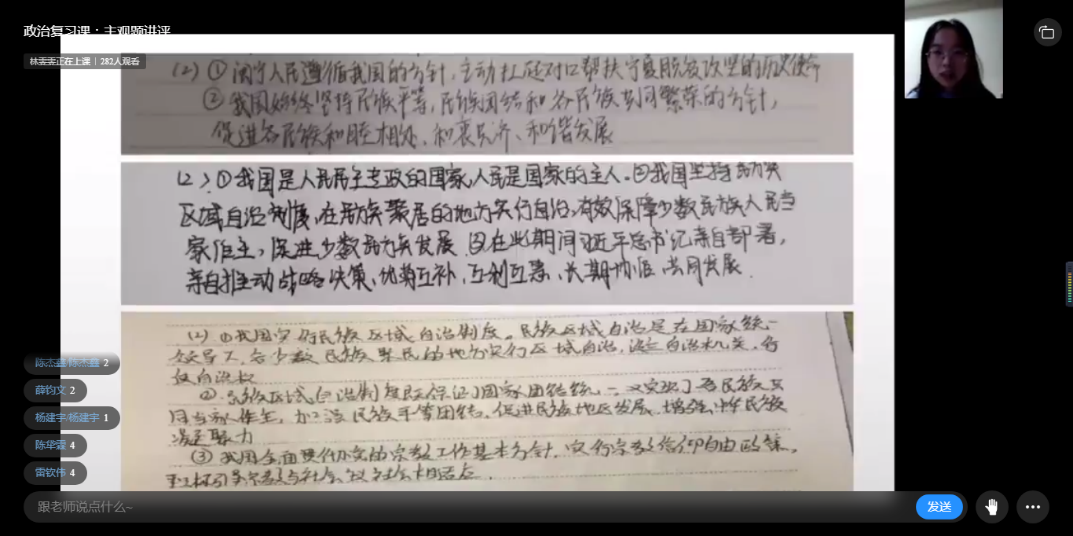 政治复习课：主观题讲评
正在上课｜282人观看
(2) ①闽宁人民遵循我国的方针，主动扛起对口帮扶宁夏脱贫攻坚的历史使命
②我国始终坚持民族平等，民族团结和各民族共同繁荣的方针，
促进各民族和睦相处、和衷共济、和谐发展
(2) ①我国是人民民主专政的国家，人民是国家的主人。②我国坚持民族
区域自治制度，在民族聚居的地方实行自治，有效保障少数民族人民当
家作主，促进少数民族发展 ③在此期间习近平总书记亲自部署，
亲自推动战略决策，优势互补，互利互惠、长期协作 共同发展.
(2) ①我国实行民族区域自治制度。民族区域自治是在国家统一
领导下，各少数民族聚居的地方实行区域自治，设立自治机关，行
使自治权
②民族区域自治制度既保证了国家团结统一，又实现了各民族共
同当家作主，加强民族平等团结，促进民族地区发展，增强中华民族
凝聚力
③我国全面贯彻党的宗教工作基本方针，实行宗教信仰自由政策，
积极引导宗教与社会主义社会相适应.
陈杰鑫/陈杰鑫 2
薛钧文 2
杨建宇/杨建宇 1
陈华露 4
雷钦伟 4
跟老师说点什么~
发送